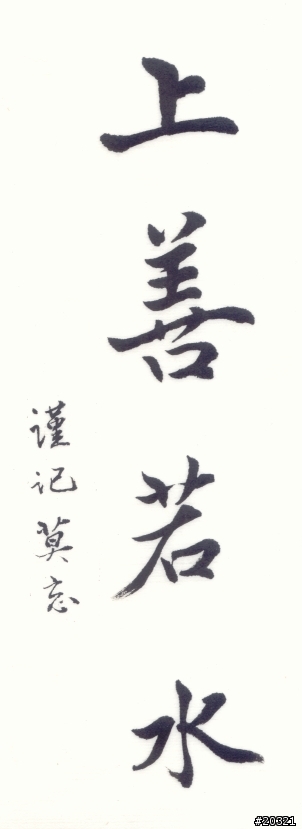 上善若水
谨记莫忘
#20321